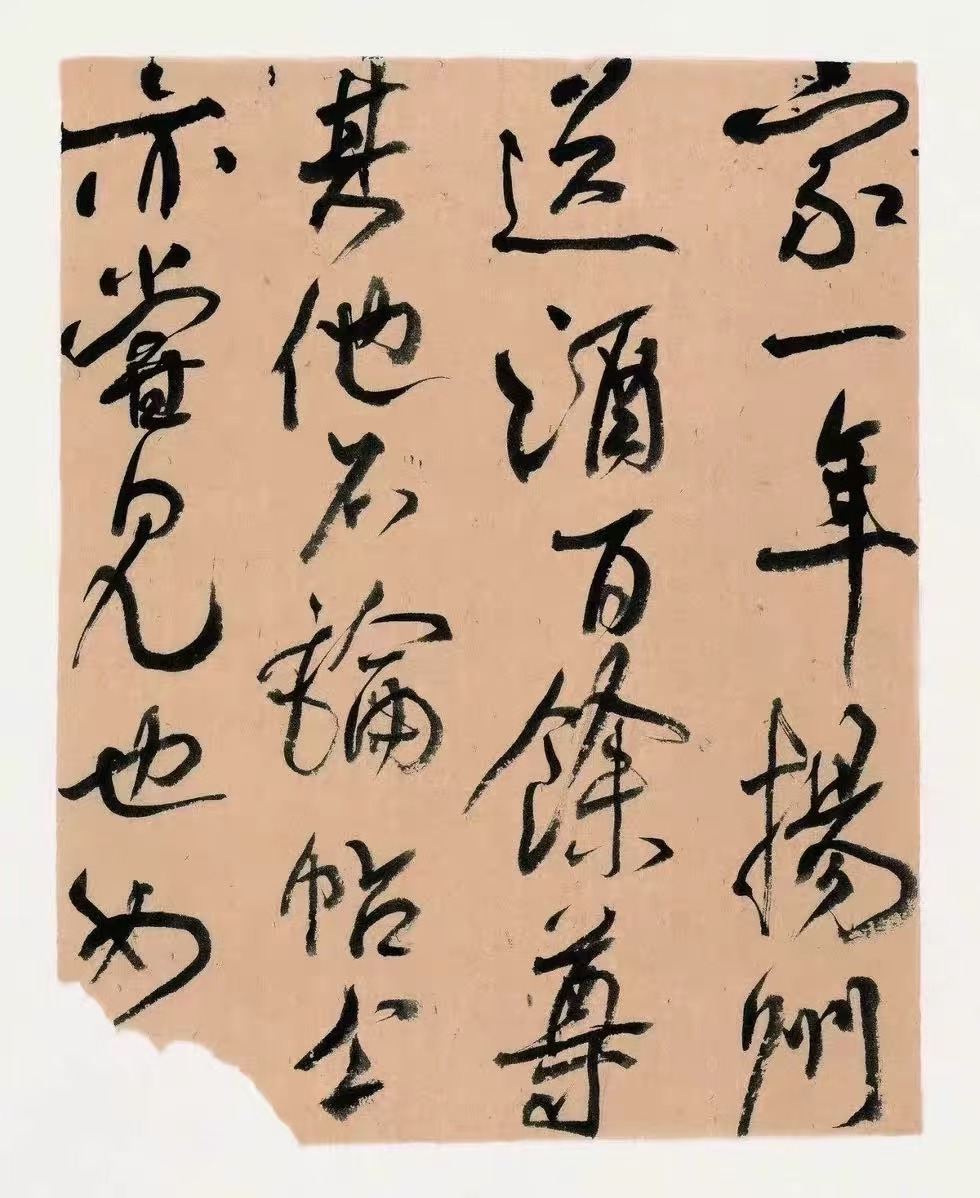 家一年揚州
送酒百餘尊
其他不論帖公
亦嘗見也如